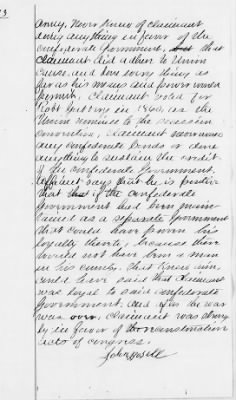 army, never knew of claimant
doing anything in favor of the
confederate Government, but that
claimant did adhere to Union
cause, and done every thing as
far as his means and power would
permit, claimant voted for
in 1860, as the
Union nominee to the secession
convention, claimant never owned
any confederate bonds or done
anything to sustain the credit
of the confederate Government.
affiant says that he is positive
that if the confederate
Government had been main-
tained as a separate Government
that could have proven his
loyalty thereby, because there
would not have been a man
in his county, that knew him,
could have said that claimant
was loyal to said confederate
Government. and after the war
was over, claimant was strong-
ly in favor of the reconstruction
acts of congress.